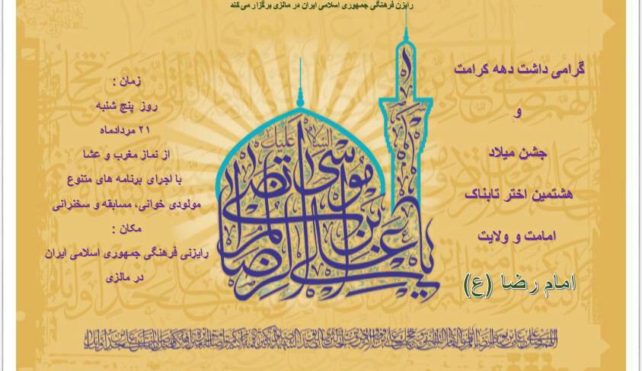 رایزن فرهنگی جمهوری اسلامی ایران در مالزی برگزار می کند
گرامی داشت دهه کرامت
و
جشن میلاد
هشتمین اختر تابناک
امامت و ولایت
امام رضا (ع)
زمان :
روز پنج شنبه
۲۱ مردادماه
از نماز مغرب و عشا
با اجرای برنامه های متنوع
مولودی خوانی، مسابقه و سخنرانی
مکان :
رایزنی فرهنگی جمهوری اسلامی ایران
در مالزی
السلام علیک
یا علی بن موسی الرضا المرتضی